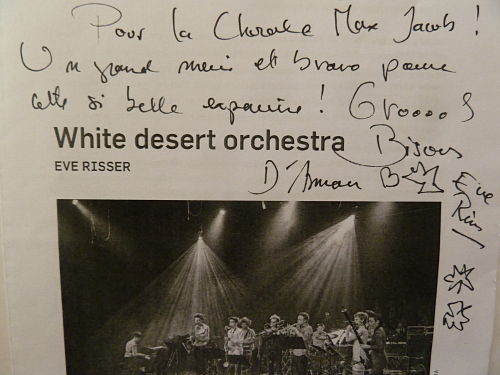 Pour la Chorale Max Jacob !
Un grand merci et bravo pour
cette si belle expérience ! Groooos
White desert orchestra
Bisous
EVE RISSER
Eve